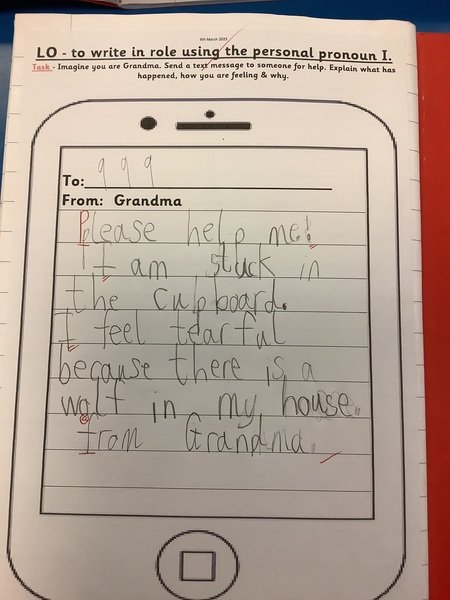 6th March 2023
LO - to write in role using the personal pronoun I.
Task - Imagine you are Grandma. Send a text message to someone for help. Explain what has
happened, how you are feeling & why.
To: 999
From: Grandma
Please help me!
I am stuck in
the cupboard.
I feel tearful
because there is a
wolf in my house.
from Grandma.